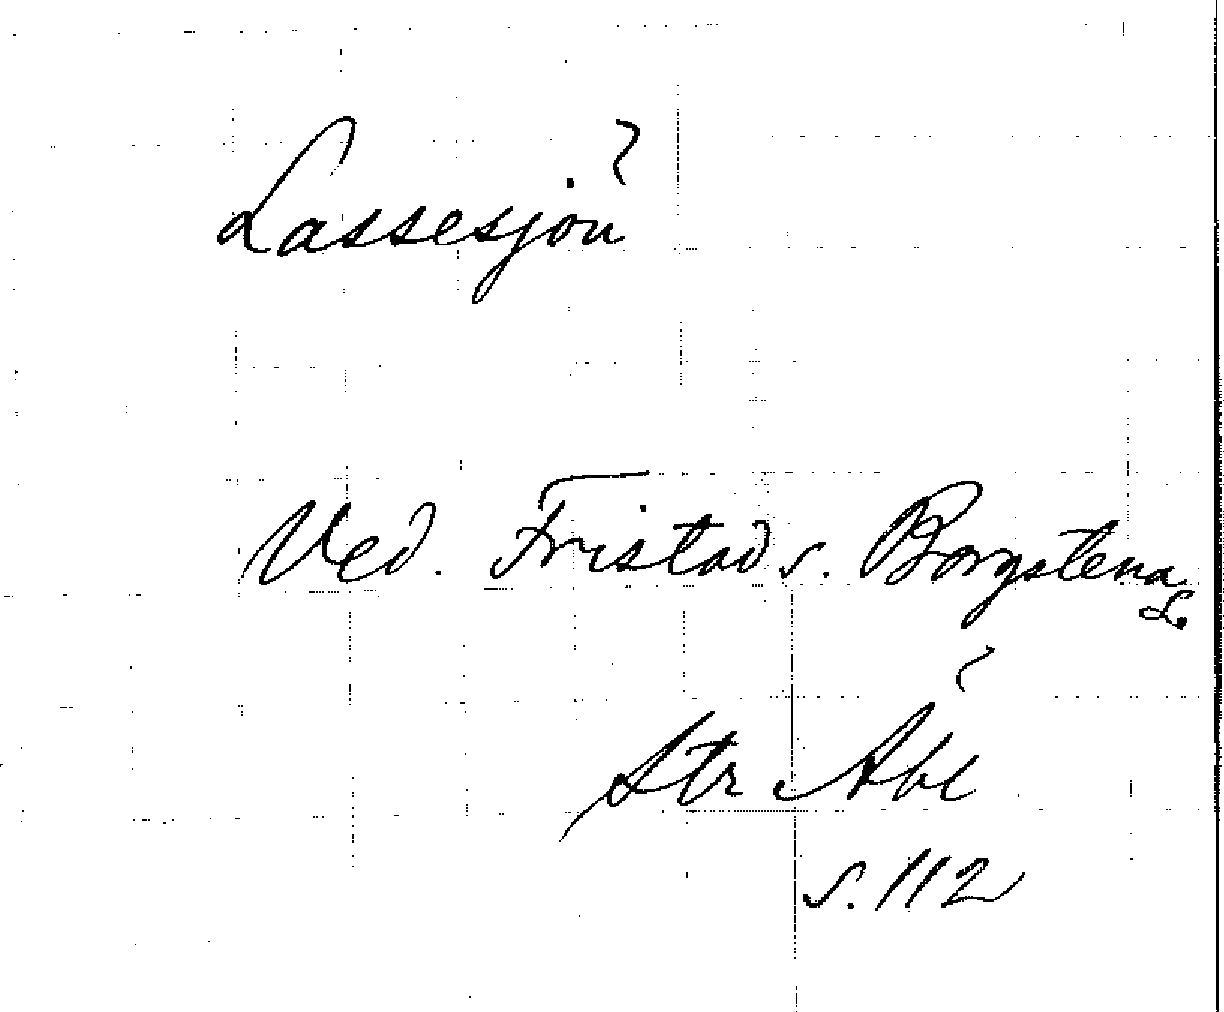 Lassesjön
Ved. Fristad s. Borgstena
Str Åbl
s. 112